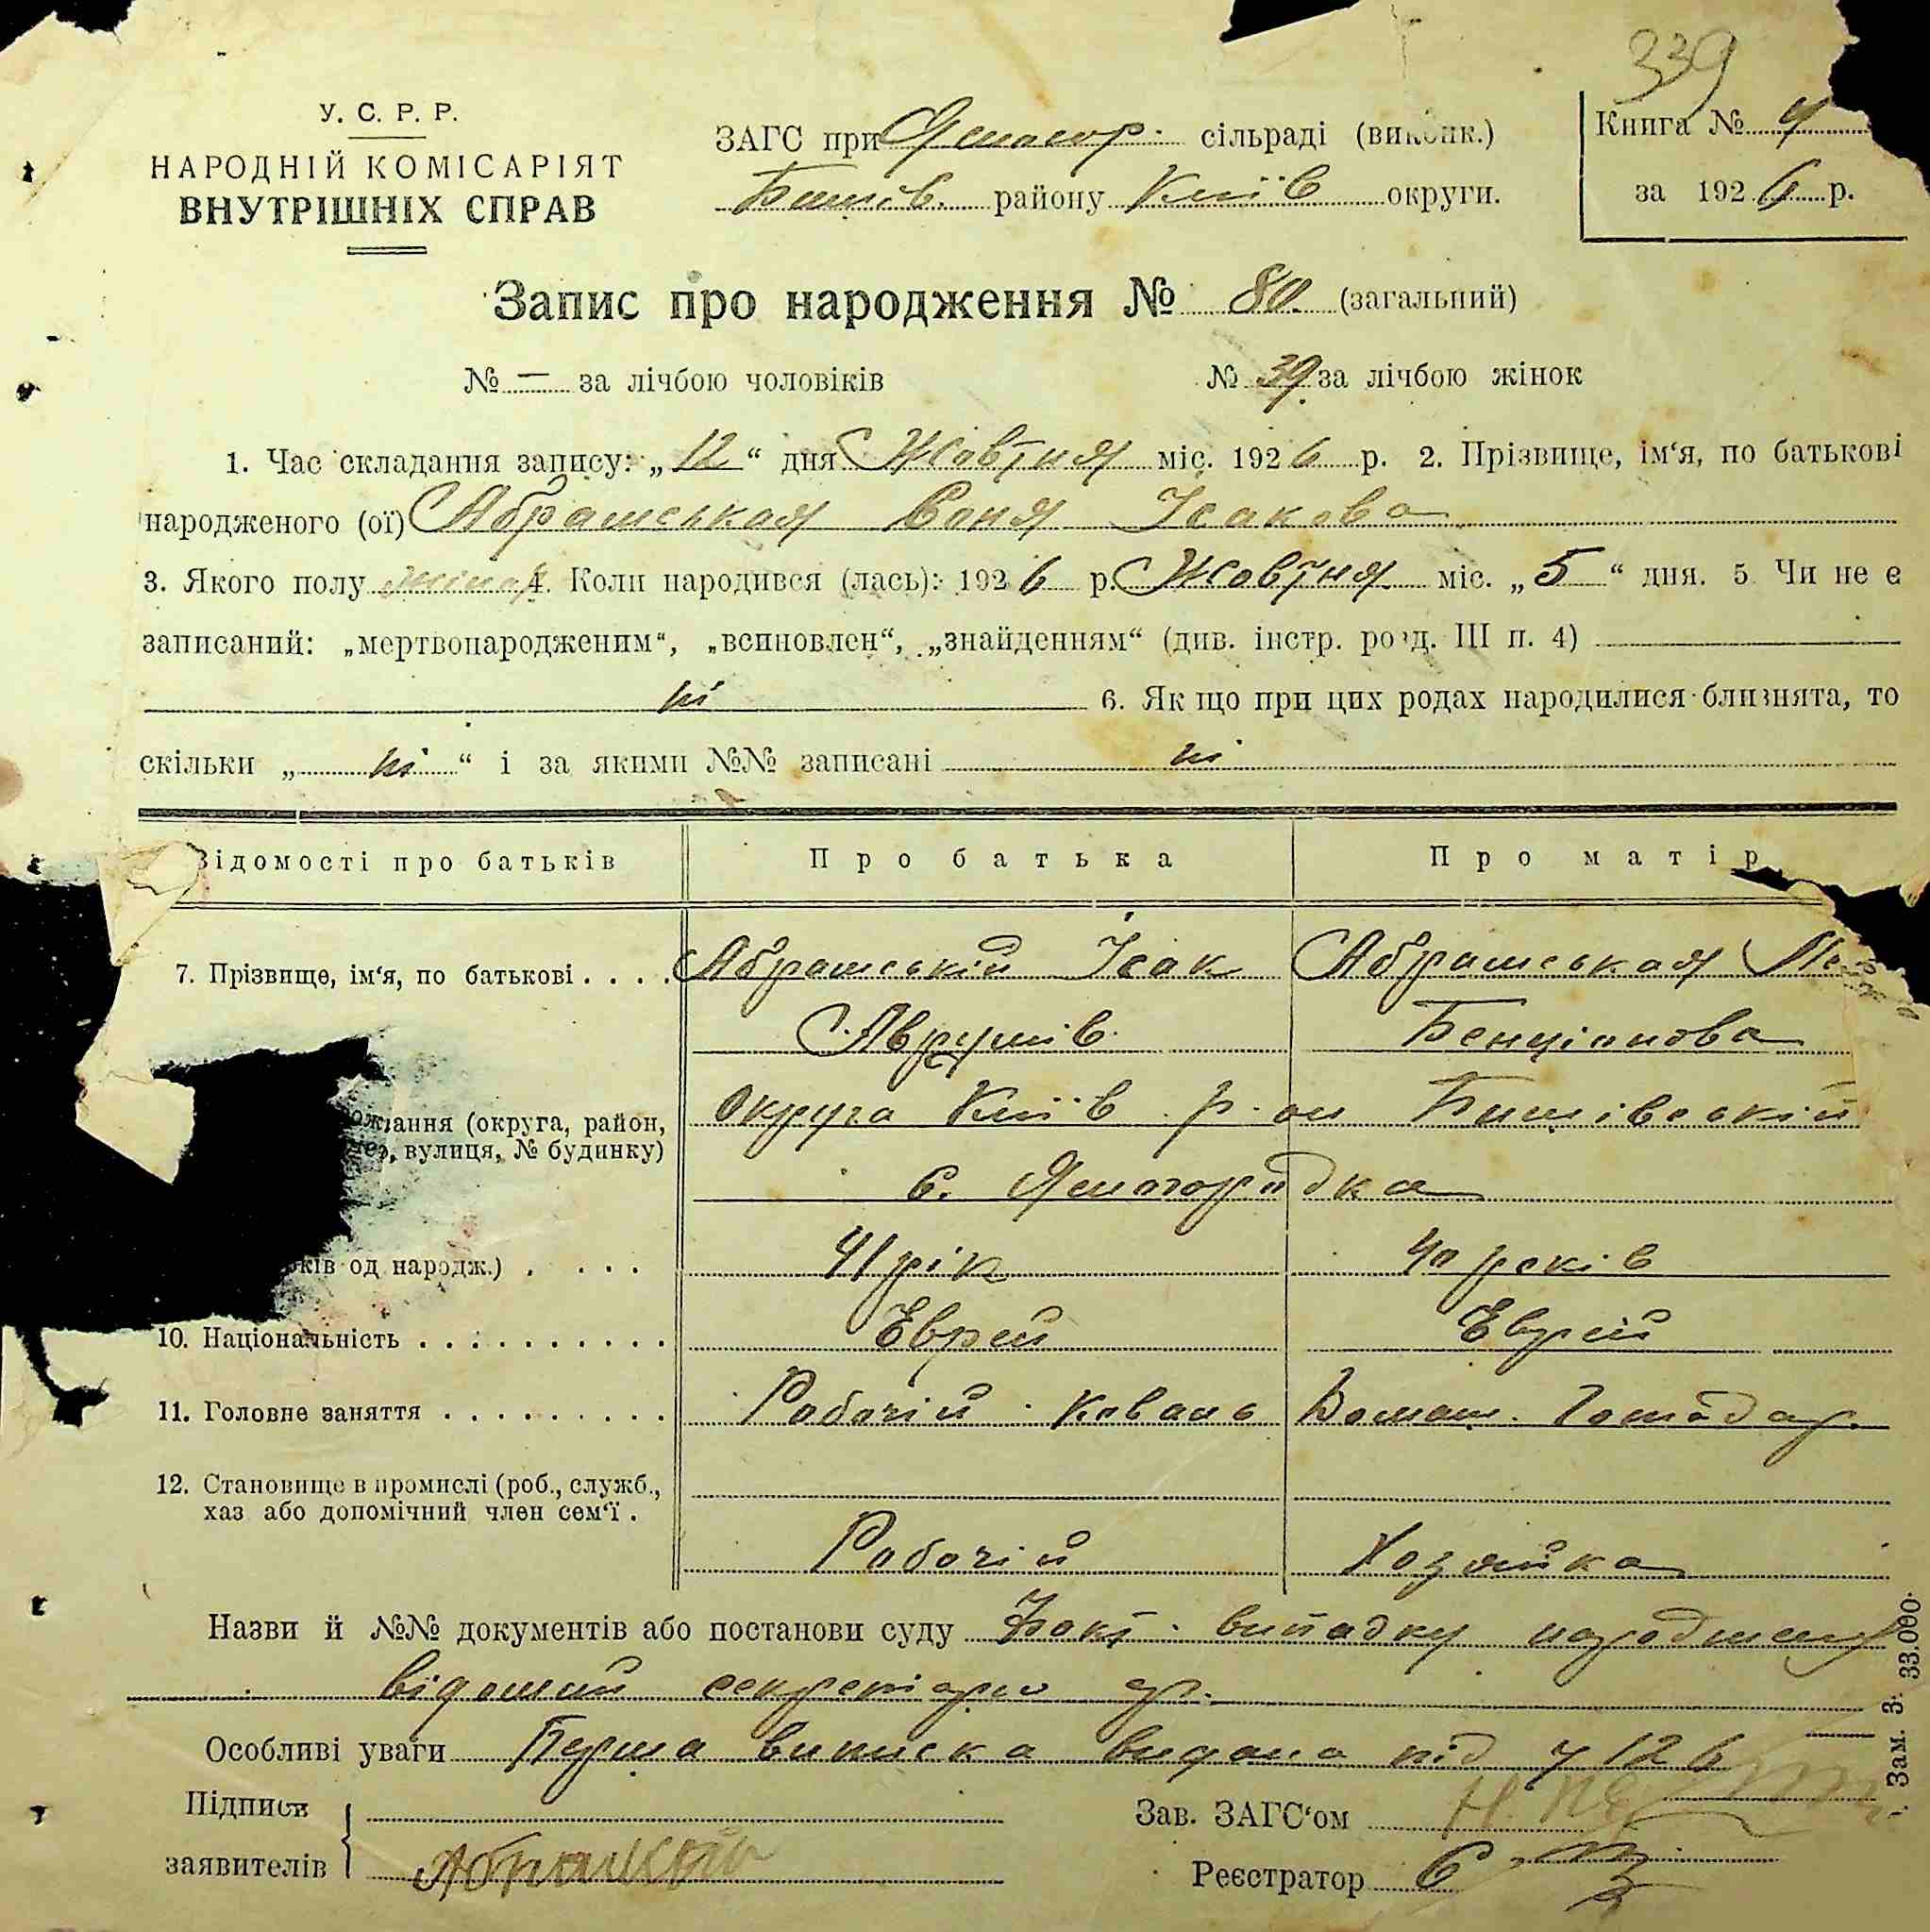 339
У. С. Р. Р.
НАРОДНІЙ КОМІСАРІЯТ
ВНУТРІШНІХ СПРАВ
ЗАГС при Ясногор. сільраді (виконк.)
Бишів. району Київ округи.
Книга № 4
за 1926 р.
Запис про народження № 80. (загальний)
№ — за лічбою чоловіків № 39 за лічбою жінок
1. Час складання запису: „12“ дня Жовтня міс. 1926 р. 2. Прізвище, ім‘я, по батькові
народженого (ої) Абрамськая Соня Ісакова
3. Якого полу жіноч 4. Коли народився (лась): 1926 р. Жовтня міс. „5“ дня. 5 Чи не є
записаний: „мертвонародженим“, „всиновлен“, „знайденням“ (див. інстр. розд. III п. 4)
ні 6. Як що при цих родах народилися близнята, то
скільки „ні“ і за якими №№ записані ні
Відомості про батьків Про батька Про матір
7. Прізвище, ім‘я, по батькові . . . . Абрамській Ісак Абрамськая
Аврумів. Бенціонова
ожання (округа, район, Округа Київ р-он Бишівській
вулиця, № будинку)
с. Ясногородка
ків од народж.) . . . . 41 рік 40 років
10. Національність . . . . . . . . . . Еврей Еврей
11. Головне заняття . . . . . . . . . Рабочій Коваль Домаш. Господар.
12. Становище в промислі (роб., служб.,
хаз або допомічний член сем‘ї .
Рабочій Хозяйка
Назви й №№ документів або постанови суду Факт випадку народження
відомий секретарю
Особливі уваги Перша виписка видана під ч 126
Підписи
заявителів Абрамській
Зав. ЗАГС‘ом
Реєстратор
Зам. 3. 33.000.